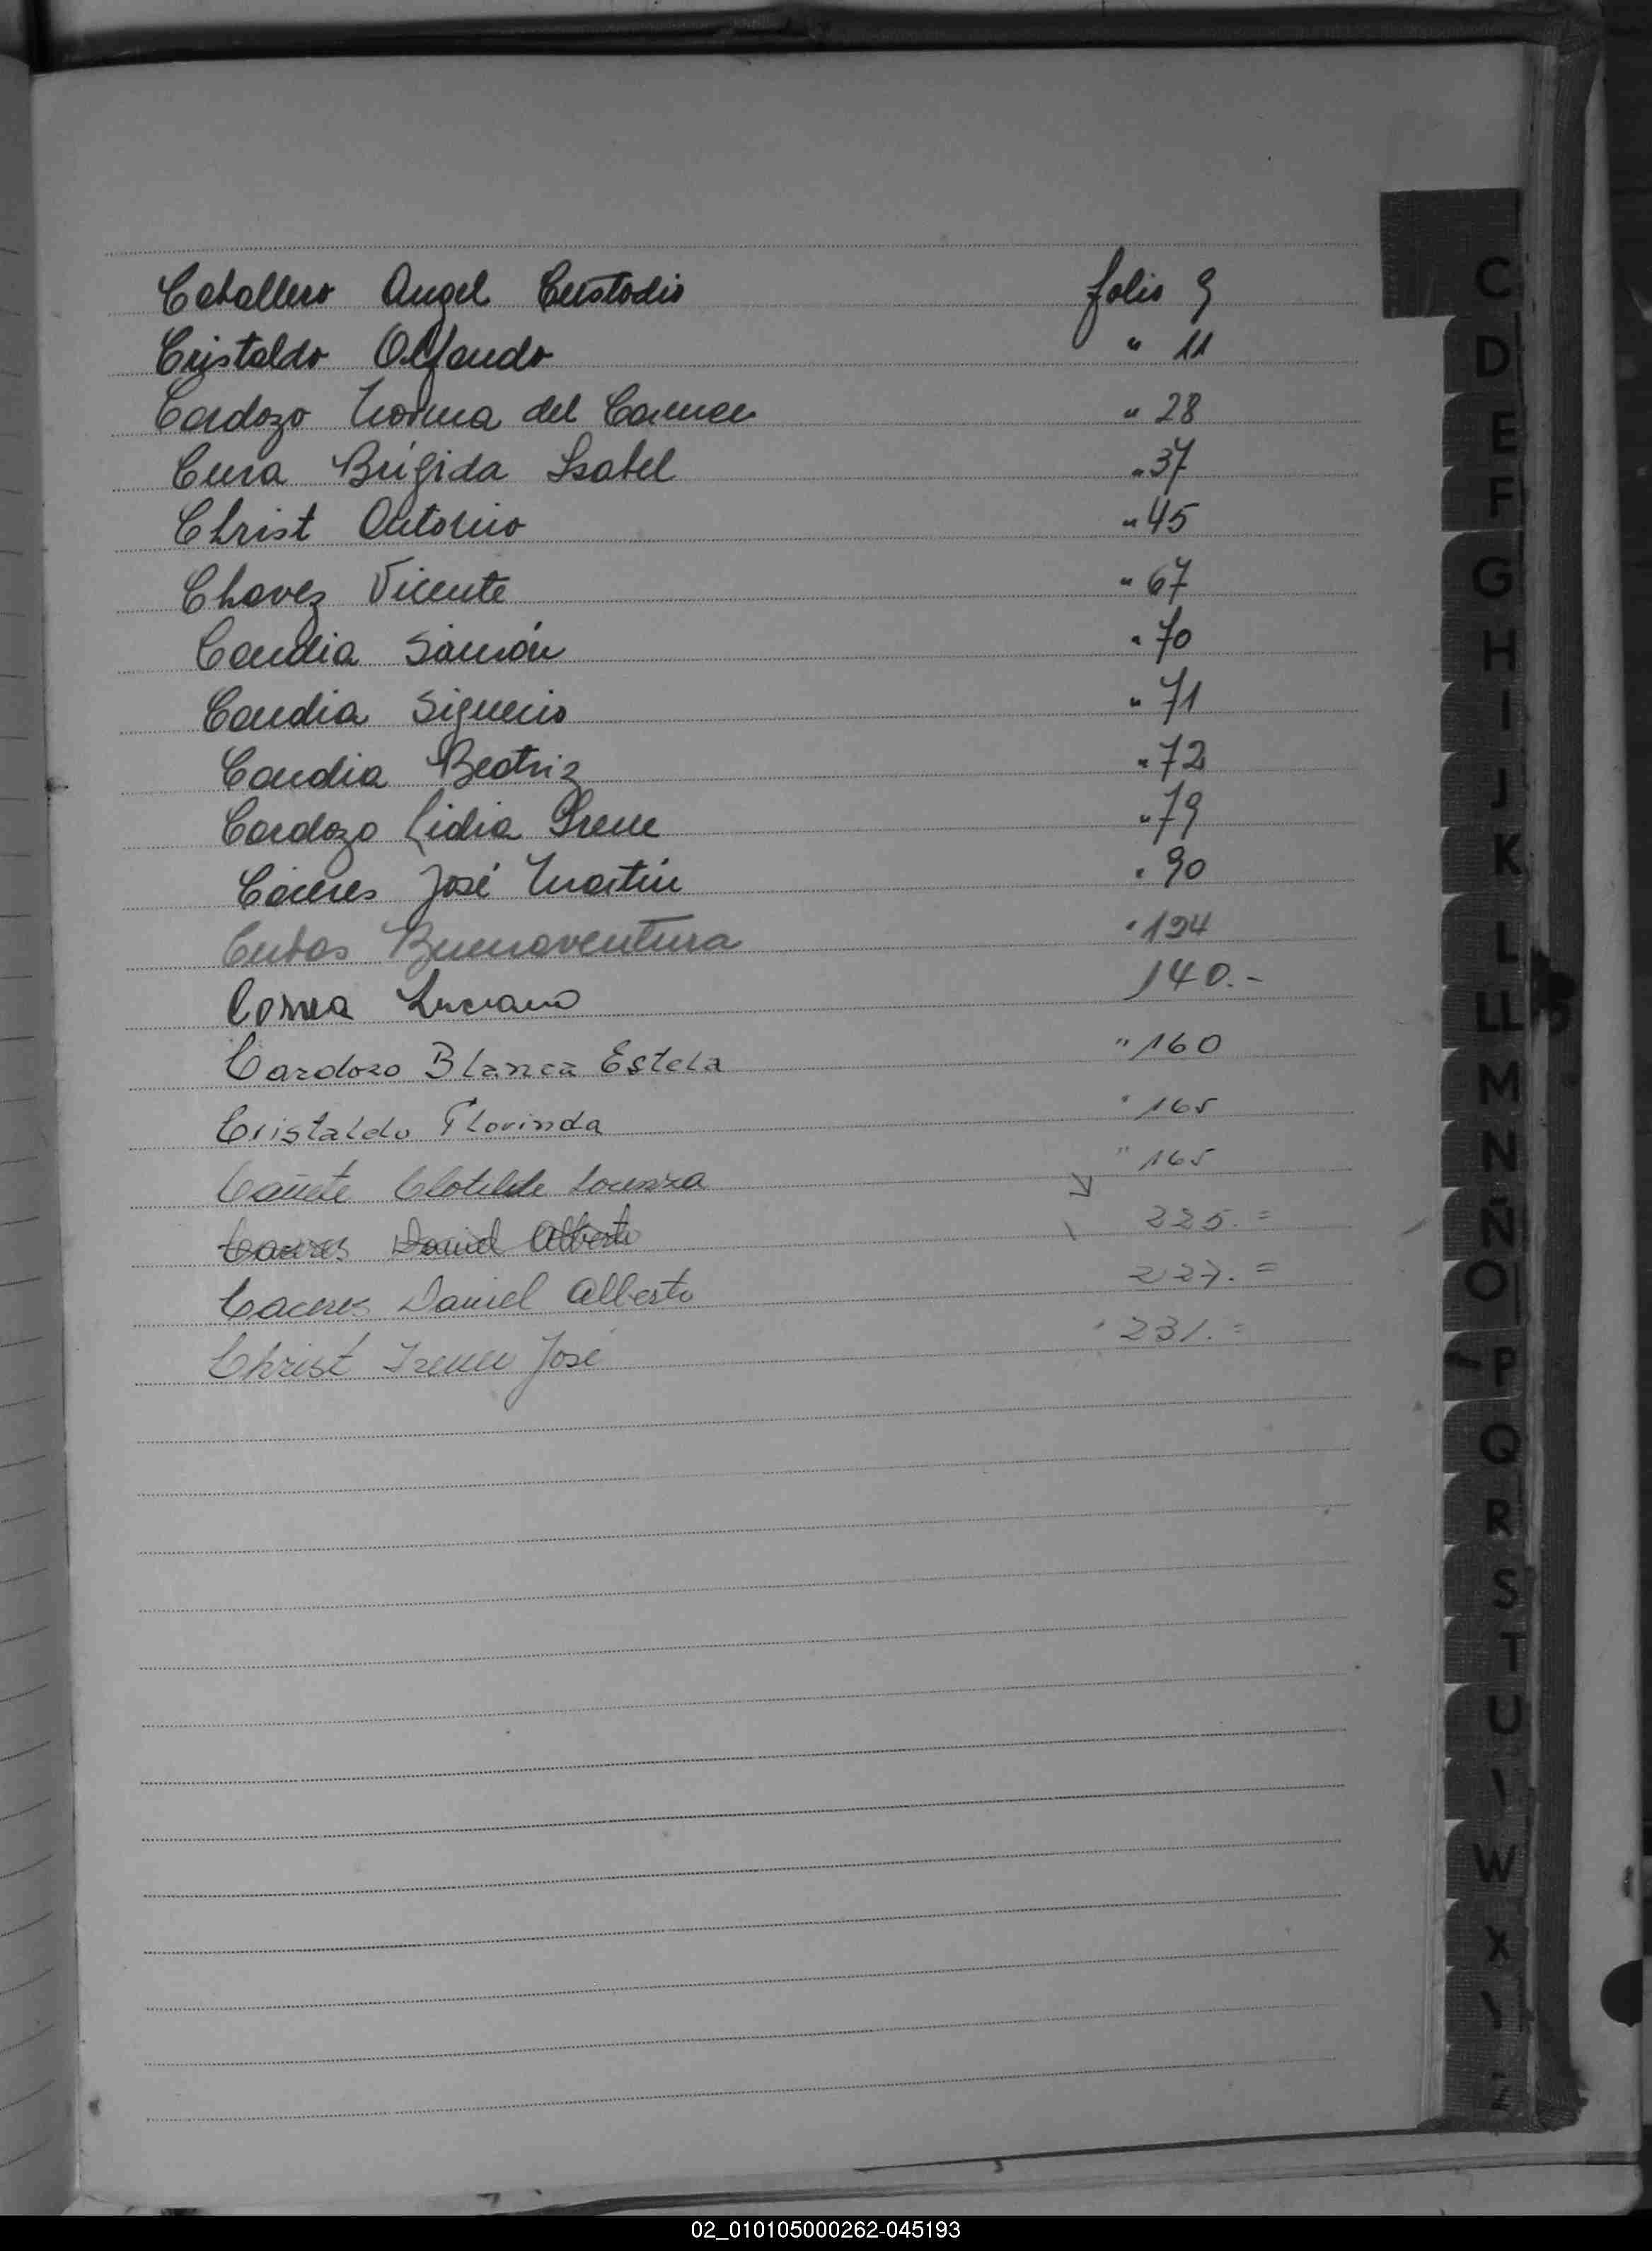 Caballero Angel Custodio folio 9
Cristaldo Olfando " 11
Cardozo Norma del Carmen " 28
Cura Brígida Isabel " 37
Christ Antonio " 45
Chavez Vicente " 67
Candia Simón " 70
Candia Signecio " 71
Candia Beatriz " 72
Cardozo Lidia Irene " 79
Cáceres José Martín " 90
Cubas Buenaventura " 124
Correa Luciano 140.-
Cardozo Blanca Estela " 160
Cristaldo Florinda " 165
Cañete Clotilde Lorenza " 165
Caceres Daniel Alberto 225.=
Caceres Daniel Alberto 227.=
Christ Ireneo José " 231.=
C
D
E
F
G
H
I
J
K
L
LL
M
N
Ñ
O
P
Q
R
S
T
U
W
X
02_010105000262-045193